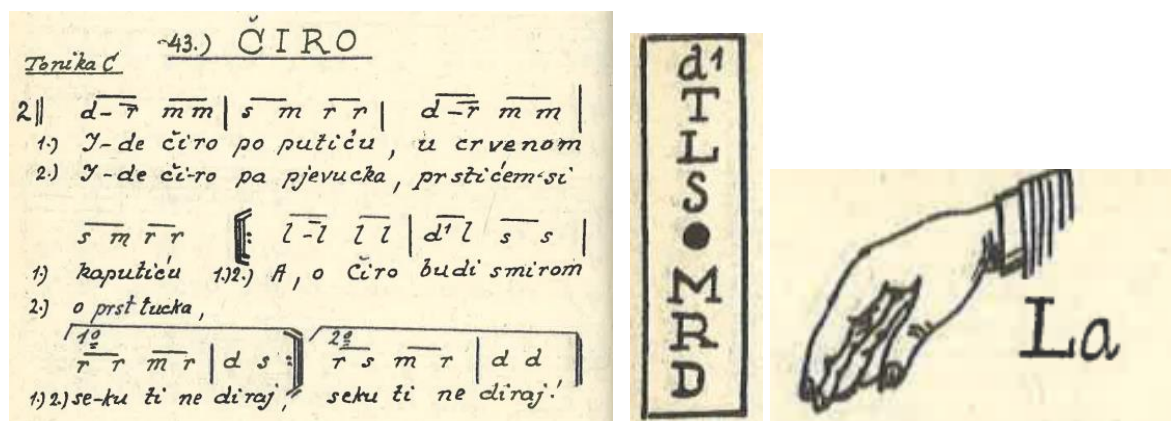 43.) ČIRO
Tonika C
2 d-r m m | s m r r | d-r m m |
1.) I-de čiro po putiću, u crvenom
2.) I-de či-ro pa pjevucka, prstićem-si
s m r r [: l-l l l | d¹ l s s |
1.) kaputiću 1.)2.) A, o Čiro budi smirom
2.) o prst tucka,
1º 2º
r r m r | d s :] r s m r | d d
1.)2.) se-ku ti ne diraj, seku ti ne diraj!
d¹
T
L
S
●
M
R
D
La